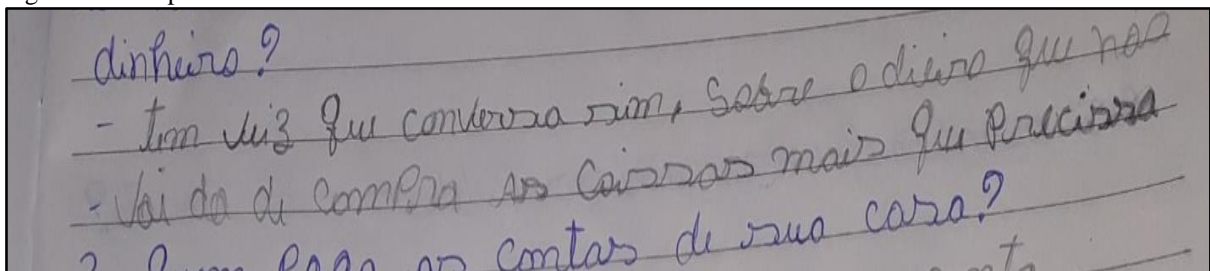 dinheiro?
- tem veis que converssa sim, Sobre o dieiro que não
- Vai da de compra as Coissas mais que Precissa
2. Quem paga as contas de sua casa?